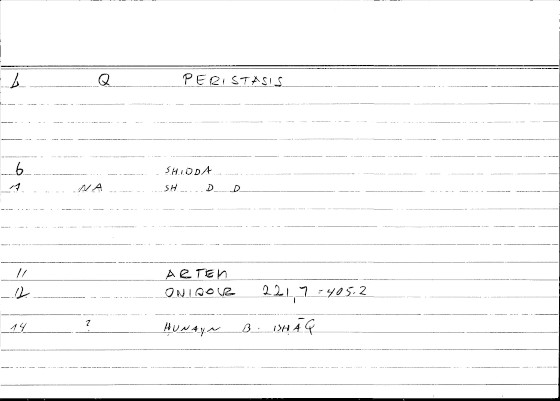 b Q PERISTASIS
6 SHIODA
1 NA SH D D
11 ARTEM
12 221,7 = 405.2
14 ? ḤUNAYN B. ISḤĀQ